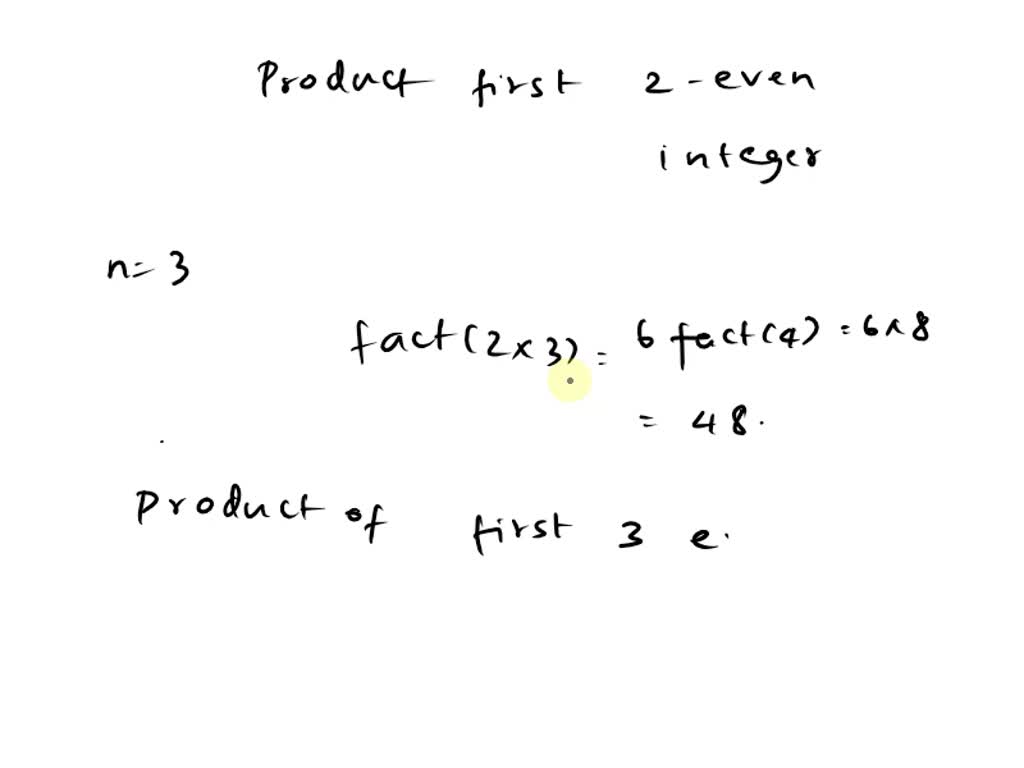 Product first 2-even
integer
n= 3
fact(2x3) = 6 fact(4) = 6x8
= 48.
Product of first 3 e.